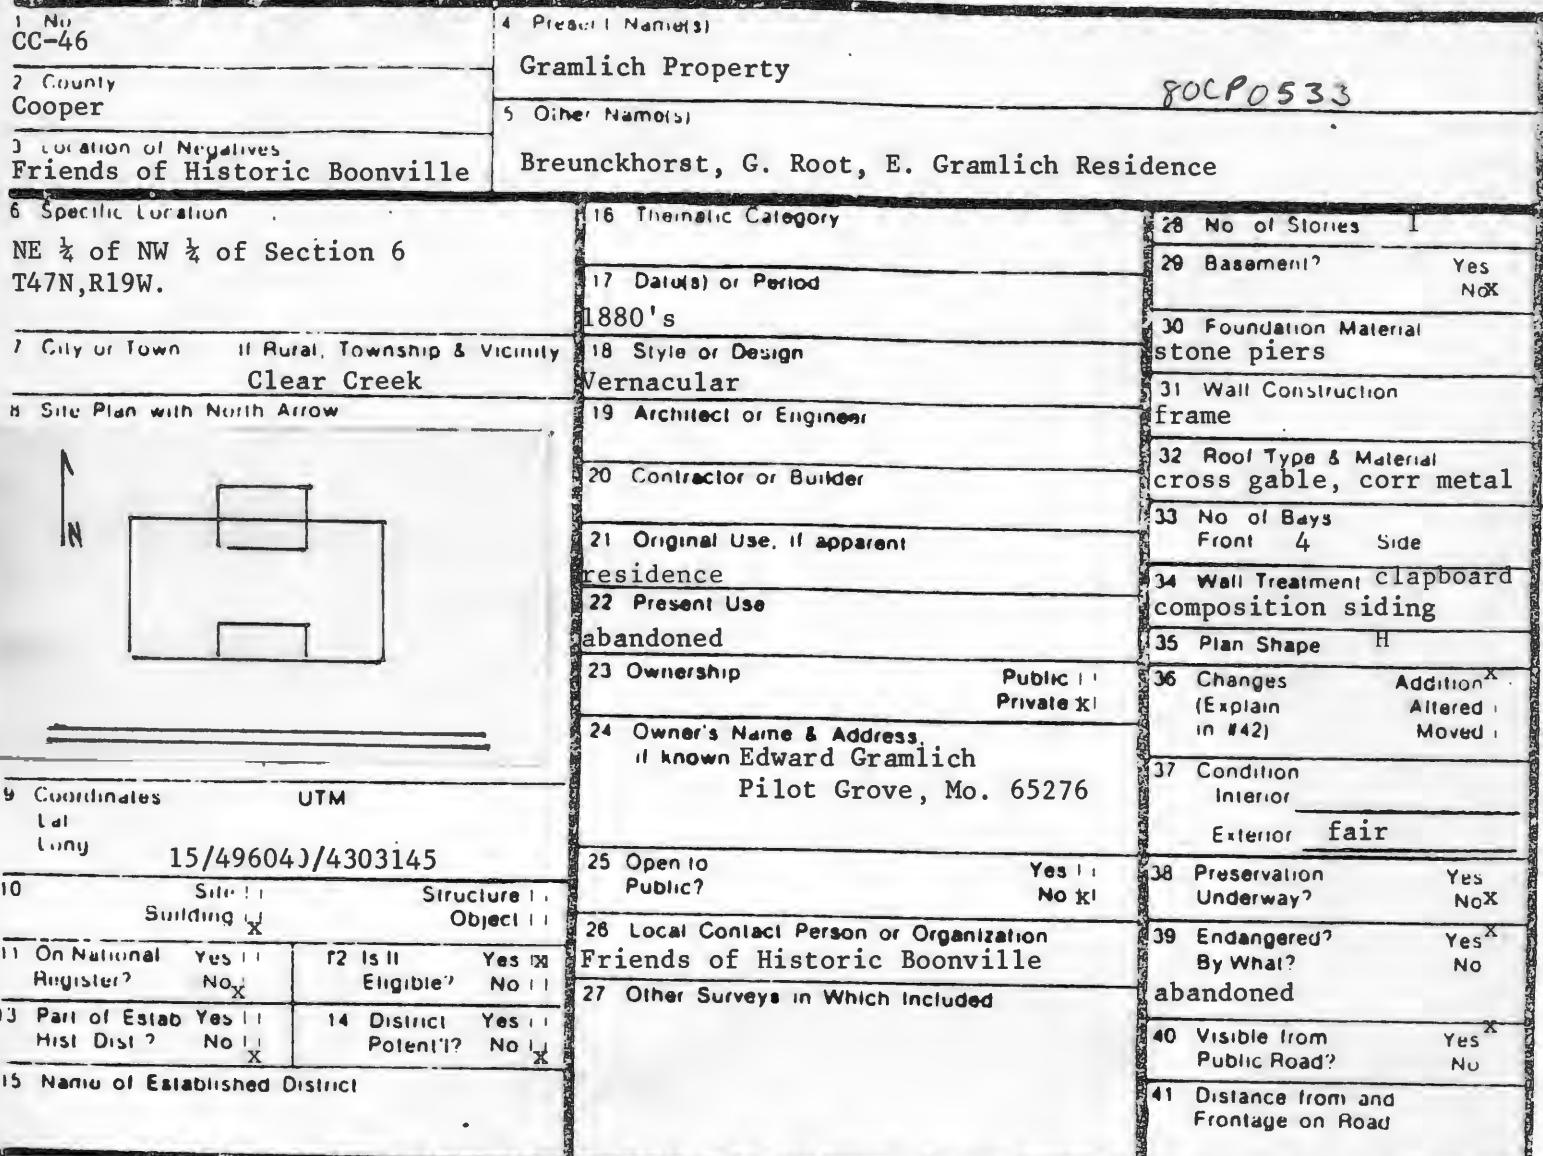 1 No
CC-46
2 County
Cooper
3 Location of Negatives
Friends of Historic Boonville
4 Present Name(s)
Gramlich Property
80CP0533
5 Other Name(s)
Breunckhorst, G. Root, E. Gramlich Residence
6 Specific Location
NE ¼ of NW ¼ of Section 6
T47N,R19W.
7 City or Town If Rural, Township & Vicinity
Clear Creek
8 Site Plan with North Arrow
N
9 Coordinates UTM
Lat
Long
15/49604 /4303145
10 Site Structure
Building X Object
11 On National Yes
Register? No X
12 Is It Yes X
Eligible? No
13 Part of Estab Yes
Hist Dist? No X
14 District Yes
Potent'l? No X
15 Name of Established District
16 Thematic Category
17 Date(s) or Period
1880's
18 Style or Design
Vernacular
19 Architect or Engineer
20 Contractor or Builder
21 Original Use, if apparent
residence
22 Present Use
abandoned
23 Ownership Public
Private X
24 Owner's Name & Address,
if known Edward Gramlich
Pilot Grove, Mo. 65276
25 Open to Yes
Public? No X
26 Local Contact Person or Organization
Friends of Historic Boonville
27 Other Surveys in Which Included
28 No of Stories 1
29 Basement? Yes
No X
30 Foundation Material
stone piers
31 Wall Construction
frame
32 Roof Type & Material
cross gable, corr metal
33 No of Bays
Front 4 Side
34 Wall Treatment clapboard
composition siding
35 Plan Shape H
36 Changes Addition X
(Explain Altered
in #42) Moved
37 Condition
Interior
Exterior fair
38 Preservation Yes
Underway? No X
39 Endangered? Yes X
By What? No
abandoned
40 Visible from Yes X
Public Road? No
41 Distance from and
Frontage on Road